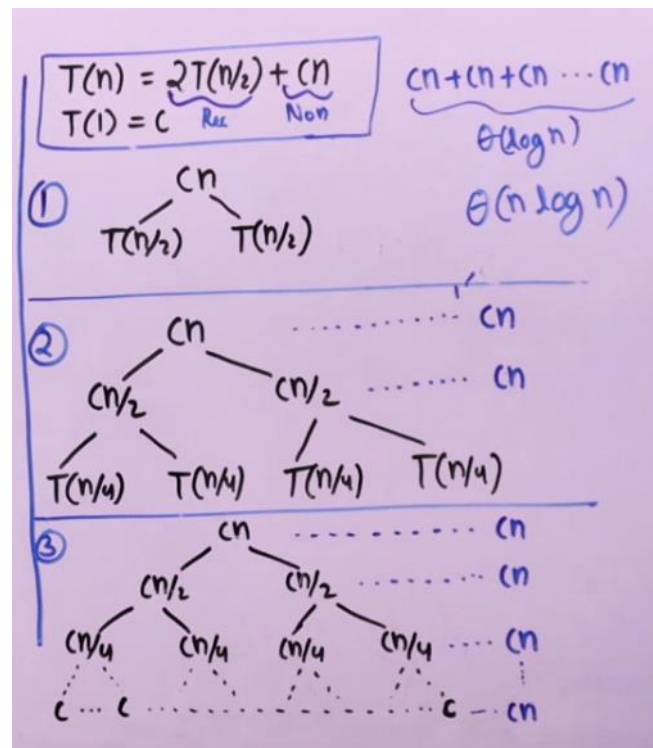 T(n) = 2T(n/2) + cn
Rec Non
T(1) = c
cn+cn+cn ··· cn
θ(log n)
θ(n log n)
①
cn
T(n/2) T(n/2)
②
cn ········· cn
cn/2 cn/2 ······· cn
T(n/4) T(n/4) T(n/4) T(n/4)
③
cn ·········· cn
cn/2 cn/2 ········ cn
cn/4 cn/4 cn/4 cn/4 ···· cn
c ··· c ··················· c -·- cn